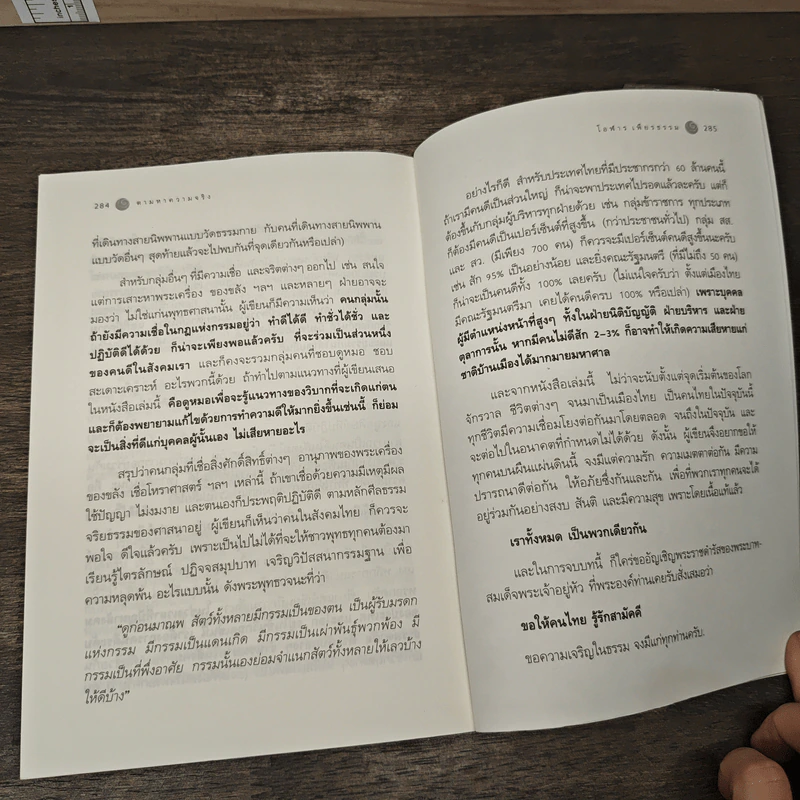 inches
284 ตามหาความจริง
ที่เดินทางสายนิพพานแบบวัดธรรมกาย กับคนที่เดินทางสายนิพพาน
แบบวัดอื่นๆ สุดท้ายแล้วจะไปพบกันที่จุดเดียวกันหรือเปล่า)
สำหรับกลุ่มอื่นๆ ที่มีความเชื่อ และจริตต่างๆ ออกไป เช่น สนใจ
แต่การเสาะหาพระเครื่อง ของขลัง ฯลฯ และหลายๆ ฝ่ายอาจจะ
มองว่า ไม่ใช่แก่นพุทธศาสนานั้น ผู้เขียนก็มีความเห็นว่า คนกลุ่มนั้น
ถ้ายังมีความเชื่อในกฎแห่งกรรมอยู่ว่า ทำดีได้ดี ทำชั่วได้ชั่ว และ
ปฏิบัติดีได้ด้วย ก็น่าจะเพียงพอแล้วครับ ที่จะร่วมเป็นส่วนหนึ่ง
ของคนดีในสังคมเรา และก็คงจะรวมกลุ่มคนที่ชอบดูหมอ ชอบ
สะเดาะเคราะห์ อะไรพวกนี้ด้วย ถ้าทำไปตามแนวทางที่ผู้เขียนเสนอ
ในหนังสือเล่มนี้ คือดูหมอเพื่อจะรู้แนวทางของวิบากที่จะเกิดแก่ตน
และก็ต้องพยายามแก้ไขด้วยการทำความดีให้มากยิ่งขึ้นเช่นนี้ ก็ย่อม
จะเป็นสิ่งที่ดีแก่บุคคลผู้นั้นเอง ไม่เสียหายอะไร
สรุปว่าคนกลุ่มที่เชื่อสิ่งศักดิ์สิทธิ์ต่างๆ อานุภาพของพระเครื่อง
ของขลัง เชื่อโหราศาสตร์ ฯลฯ เหล่านี้ ถ้าเขาเชื่อด้วยความมีเหตุมีผล
ใช้ปัญญา ไม่งมงาย และตนเองก็ประพฤติปฏิบัติดี ตามหลักศีลธรรม
จริยธรรมของศาสนาอยู่ ผู้เขียนก็เห็นว่าคนในสังคมไทย ก็ควรจะ
พอใจ ดีใจแล้วครับ เพราะเป็นไปไม่ได้ที่จะให้ชาวพุทธทุกคนต้องมา
เรียนรู้ไตรลักษณ์ ปฏิจจสมุปบาท เจริญวิปัสสนากรรมฐาน เพื่อ
ความหลุดพ้น อะไรแบบนั้น ดังพระพุทธวจนะที่ว่า
“ดูก่อนมาณพ สัตว์ทั้งหลายมีกรรมเป็นของตน เป็นผู้รับมรดก
แห่งกรรม มีกรรมเป็นแดนเกิด มีกรรมเป็นเผ่าพันธุ์พวกพ้อง มี
กรรมเป็นที่พึ่งอาศัย กรรมนั้นเองย่อมจำแนกสัตว์ทั้งหลายให้เลวบ้าง
ให้ดีบ้าง”
โอฬาร เพียรธรรม 285
อย่างไรก็ดี สำหรับประเทศไทยที่มีประชากรกว่า 60 ล้านคนนี้
ถ้าเรามีคนดีเป็นส่วนใหญ่ ก็น่าจะพาประเทศไปรอดแล้วละครับ แต่ก็
ต้องขึ้นกับกลุ่มผู้บริหารทุกฝ่ายด้วย เช่น กลุ่มข้าราชการ ทุกประเภท
ก็ต้องมีคนดีเป็นเปอร์เซ็นต์ที่สูงขึ้น (กว่าประชาชนทั่วไป) กลุ่ม สส.
และ สว. (มีเพียง 700 คน) ก็ควรจะมีเปอร์เซ็นต์คนดีสูงขึ้นนะครับ
เช่น สัก 95% เป็นอย่างน้อย และยิ่งคณะรัฐมนตรี (ที่มีไม่ถึง 50 คน)
ก็น่าจะเป็นคนดีทั้ง 100% เลยครับ (ไม่แน่ใจครับว่า ตั้งแต่เมืองไทย
มีคณะรัฐมนตรีมา เคยได้คนดีครบ 100% หรือเปล่า) เพราะบุคคล
ผู้มีตำแหน่งหน้าที่สูงๆ ทั้งในฝ่ายนิติบัญญัติ ฝ่ายบริหาร และฝ่าย
ตุลาการนั้น หากมีคนไม่ดีสัก 2–3% ก็อาจทำให้เกิดความเสียหายแก่
ชาติบ้านเมืองได้มากมายมหาศาล
และจากหนังสือเล่มนี้ ไม่ว่าจะนับตั้งแต่จุดเริ่มต้นของโลก
จักรวาล ชีวิตต่างๆ จนมาเป็นเมืองไทย เป็นคนไทยในปัจจุบันนี้
ทุกชีวิตมีความเชื่อมโยงต่อกันมาโดยตลอด จนถึงในปัจจุบัน และ
จะต่อไปในอนาคตที่กำหนดไม่ได้ด้วย ดังนั้น ผู้เขียนจึงอยากขอให้
ทุกคนบนผืนแผ่นดินนี้ จงมีแต่ความรัก ความเมตตาต่อกัน มีความ
ปรารถนาดีต่อกัน ให้อภัยซึ่งกันและกัน เพื่อที่พวกเราทุกคนจะได้
อยู่ร่วมกันอย่างสงบ สันติ และมีความสุข เพราะโดยเนื้อแท้แล้ว
เราทั้งหมด เป็นพวกเดียวกัน
และในการจบบทนี้ ก็ใคร่ขออัญเชิญพระราชดำรัสของพระบาท-
สมเด็จพระเจ้าอยู่หัว ที่พระองค์ท่านเคยรับสั่งเสมอว่า
ขอให้คนไทย รู้รักสามัคคี
ขอความเจริญในธรรม จงมีแก่ทุกท่านครับ.